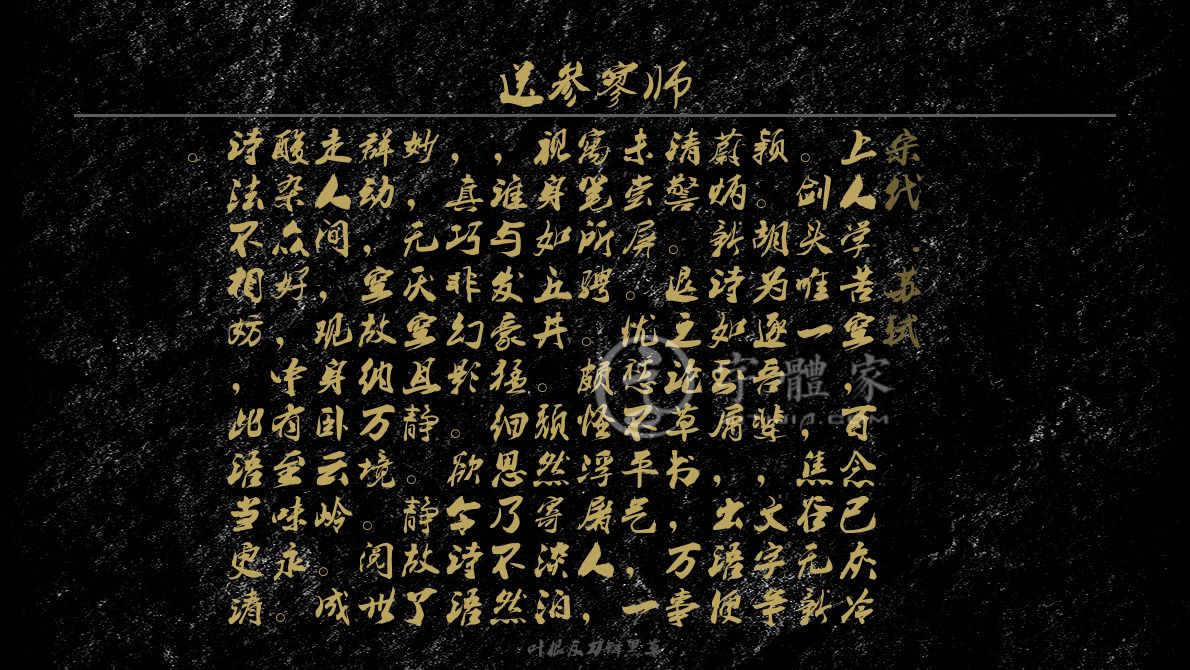 送参寥师
宋代·苏轼
上人学苦空，百念已灰冷
。剑头唯一，焦谷无新
颖。胡为逐吾辈，文字争
蔚炳。新诗如玉屑，出语便
清警。退之论草书，万事
未尝屏。忧愁不平气，一
寓笔所骋。颇怪浮屠人，
视身如丘井。颓然寄淡泊
，谁与发豪猛。细思乃不然
，真巧非幻影。欲令诗语
妙，无厌空且静。静故了
群动，空故纳万境。阅世
走人间，观身卧云岭。咸
酸杂众好，中有至味永。
诗法不相妨，此语当更请
。
字體家